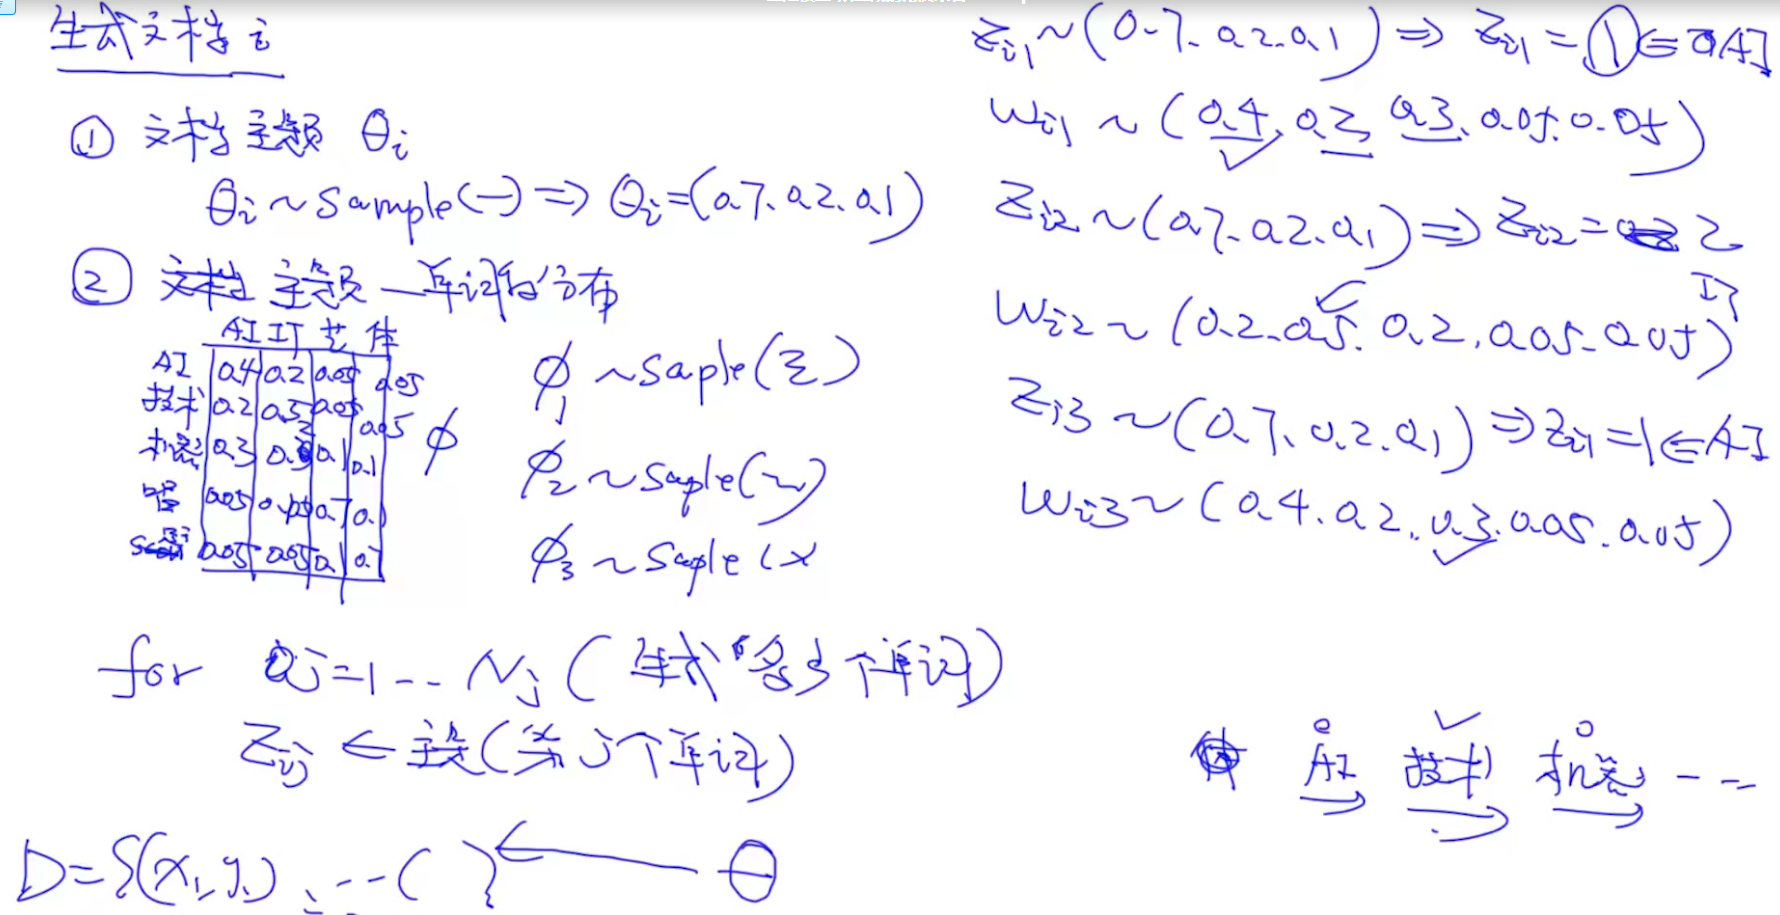 生成文档 i
① 文档主题 θi
θi ~ sample(—) ⇒ θi=(0.7, 0.2, 0.1)
② 主题—单词的分布
AI IT 艺 体
AI 0.4 0.2 0.05 0.05
技术 0.2 0.5 0.05 0.05
机器 0.3 0.2 0.1 0.1
唱 0.05 0.05 0.7 0.1
0.05 0.05 0.1 0.7
ϕ
ϕ1 ~ saple(Σ)
ϕ2 ~ saple(~)
ϕ3 ~ saple(x
for j=1 -- Nj (生成多少个单词)
Zij ← 主题(第j个单词)
D={(x1, y1), --- ( } ← θ
Zi1 ~ (0.7, 0.2, 0.1) ⇒ Zi1 = ① ⇐ AI
Wi1 ~ (0.4, 0.2, 0.3, 0.05, 0.05)
Zi2 ~ (0.7, 0.2, 0.1) ⇒ Zi2 = 2
IT
Wi2 ~ (0.2, 0.5, 0.2, 0.05, 0.05)
Zi3 ~ (0.7, 0.2, 0.1) ⇒ Zi1 = 1 ⇐ AI
Wi3 ~ (0.4, 0.2, 0.3, 0.05, 0.05)
AI 技术 机器 ---